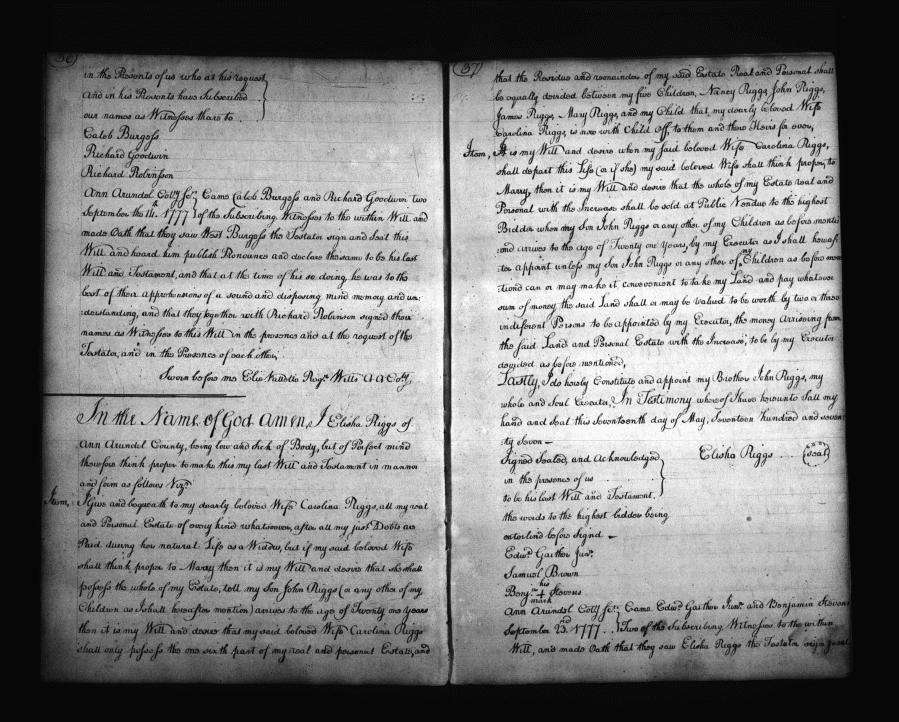 36
in the Presents of us who at his request
and in his Presents have Subscribed
our names as Witnesses thare to
Caleb Burgess
Richard Goodwin
Richard Robinson
Ann Arundel Coty Sct. Came Caleb Burgess and Richard Goodwin two
September the 1777 of the Subscribing Witnesses to the within Will and
made Oath that they saw West Burgess the Testator sign and Seal this
Will and heard him publish Pronounce and declare thesame to be his last
Will and Testament, and that at the time of his so doing he was to the
best of their apprehensions of a sound and disposing mind memory and un=
derstanding, and that they together with Richard Robinson signed their
names as Witnesses to this Will in the presence and at the request of the
Testator, and in the Presence of each other,
Sworn before me Elie Vallette Regr. Wills A A Coty.
In the Name of God Amen, I Elisha Riggs of
Ann Arundel County, being low and Sick of Body, but of Perfect mind
therefore think proper to make this my last Will and Testament in manner
and form as follows Vizt.
Item, I Give and bequeath to my dearly beloved Wife Carolina Riggs, all my real
and Personal Estate of every kind whatsoever, after all my just Debts are
Paid during her natural Life as a Widow, but if my said beloved Wife
shall think proper to Marry then it is my Will and desire that she shall
possess the whole of my Estate, tell my Son John Riggs (or any other of my
Children as I shall hereafter mention) arrives to the age of Twenty one Years
then it is my Will and desire that my said beloved Wife Carolina Riggs
shall only possess the one sixth part of my real and personal Estate, and
37
that the Residue and remainder of my said Estate Real and Personal shall
be equally devided between my five Children, Nancy Riggs, John Riggs,
James Riggs, Mary Riggs, and my Child that my dearly beloved Wife
Carolina Riggs, is now with Child off, to them and there Heirs for ever,
Item, It is my Will and desire when my said beloved Wife Carolina Riggs,
shall depart this Life (or if she) my said beloved Wife shall think proper, to
Marry, then it is my Will and desire that the whole of my Estate real and
Personal with the Increase shall be sold at Public Vendue to the highest
Bidder when my Son John Riggs or any other of my Children as before menti
oned arrives to the age of Twenty one Years, by my Executor as I shall hereaf
ter appoint unless my Son John Riggs or any other of my Children as before men
tioned can or may make it convenient to take my Land and pay whatever
sum of money the said Land shall or may be valued to be worth by two or three
indeferent Persons to be appointed by my Executor, the money Arrissing from
the said Land and Personal Estate with the Increase, to be by my Executor
devided as before mentioned,
Lastly, I do hereby Constitute and appoint my Brother John Riggs, my
whole and Soul Executor, In Testimony whereof I have hereunto Sett my
hand and Seal this Seventeenth day of May, Seventeen hundred and seven
ty Seven —
Signed Sealed, and Acknowledged
in the presence of us Elisha Riggs Seal
to be his last Will and Testament,
the words to the highest bidder being
enterlind before Signd —
Edwd. Gaither Junr.
Samuel Brown
Benjn. his + mark Stevens
Ann Arundel Coty Sct. Came Edwd. Gaither Junr. and Benjamin Stevens
September 23d. 1777 Two of the Subscribing Witnesses to the within
Will, and made Oath that they saw Elisha Riggs the Testator sign